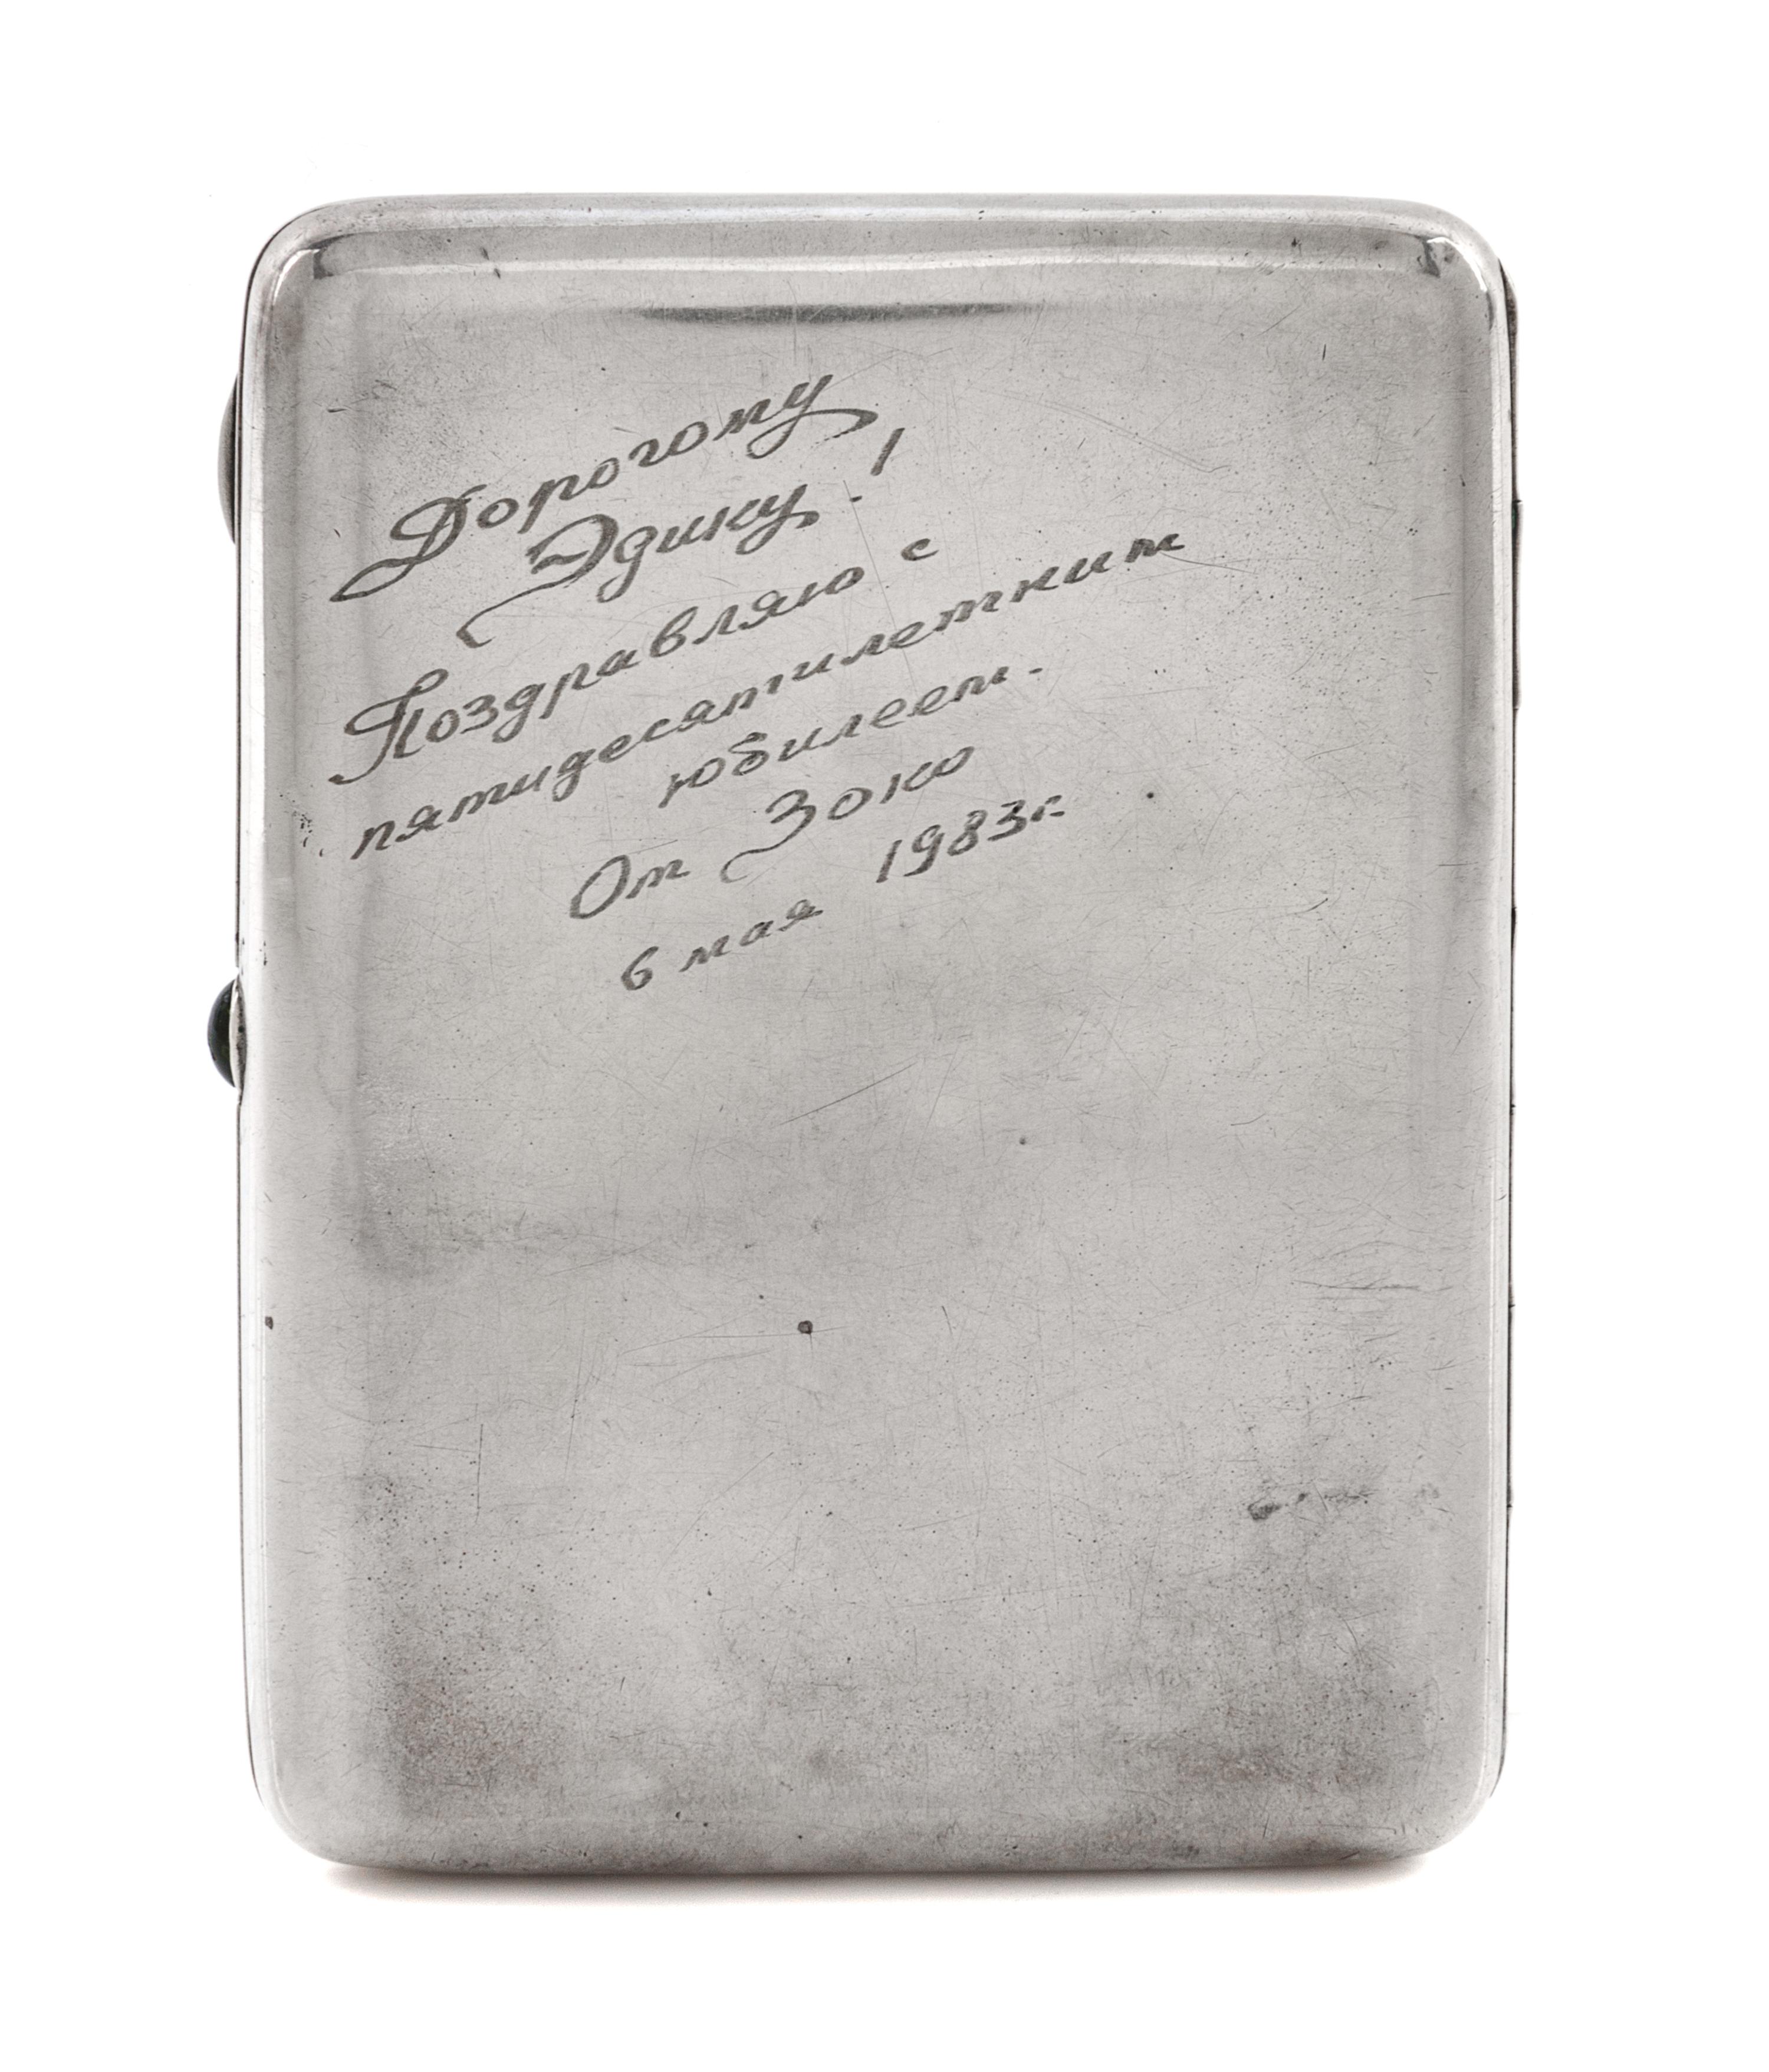 Дорогому
Эдику!
Поздравляю с
пятидесятилетним
юбилеем.
От Зокю
6 мая 1983г.